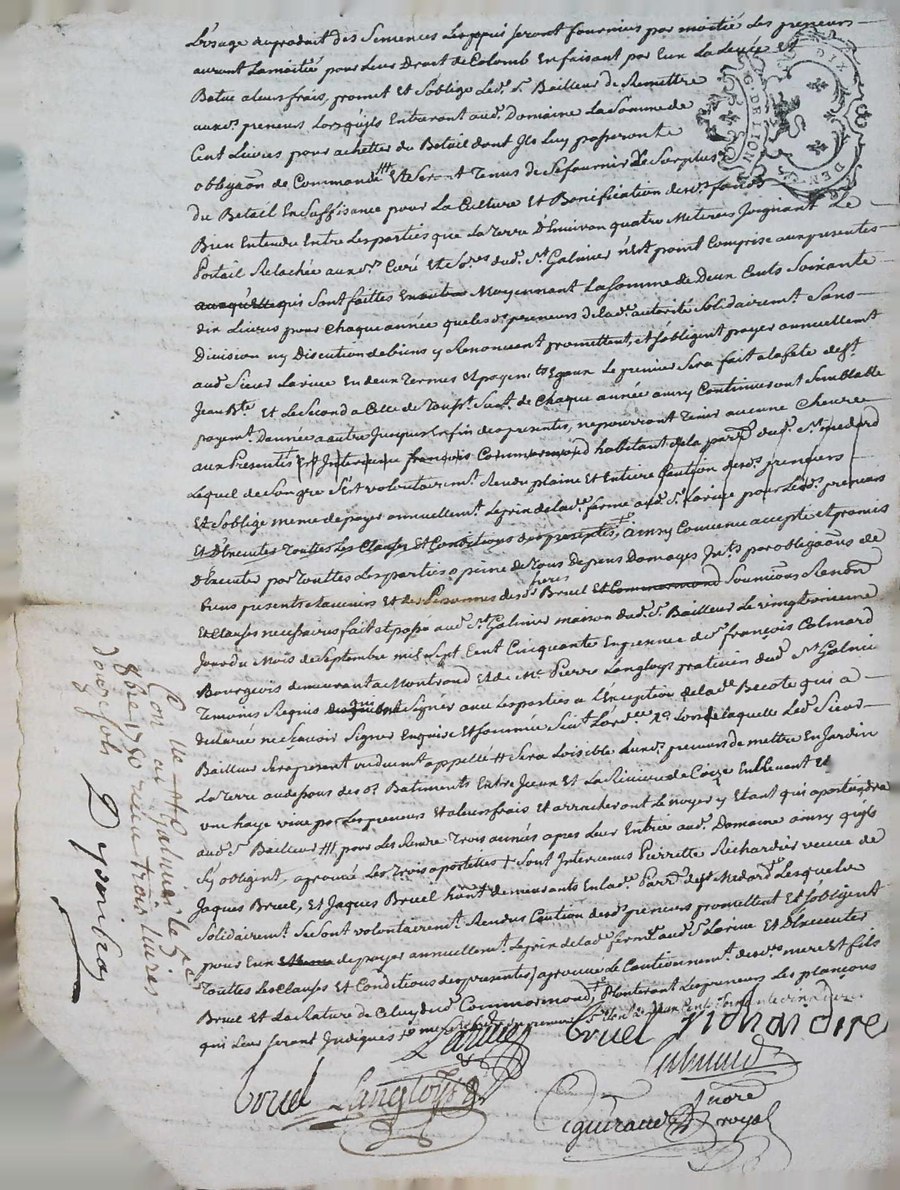 L'usage du produit des Semences Lesquels Seront fournies par moitié Les preneurs
auront La moitié pour Leur Droit de Colomb En faisant par Eux La Levée Et
Batue a Leurs frais, promet Et S'oblige Led. Sr. Bailleur de Remettre
auxd. preneurs Lorsqu'ils Entreront aud. Domaine La Somme de
Cent Livres pour achetter du Betail dont Ils Luy passeront
obligaôn de Commande Et Seront Tenus de Se fournir Le Surplus
du Betail En Suffisance pour La Culture Et Bonification desd. fonds
Bien Entendu Entre Les parties que La Terre d'Environ quatre Meterées Joignant Le
Portail Relachée auxd. Curé Et dud. St. Galmier n'Est point Comprise aux presentes
qui Sont faittes Moyennant La Somme de Deux Cents Soixante
dix Livres pour Chaque année que Lesd. preneurs de lad. autorité Solidairemt. Sans
Division ny Discution de biens y Renoncant promettent, et S'obligent payer annuellemt.
aud. Sieur Larive En deux Termes Et payem.ts Egaux Le premier Sera fait a La fete de St.
Jean Bte. Et Le Second a Celle de Touss.t de Chaque année ainsy Continueront Semblable
payemt. D'année a autre Jusques En fin des presentes, ne pourront Tenir aucune Chevre
aux Presentes Est Intervenu françois Commarmond habitant de La parr. dud. St. medard
Lequel de Son gré S'Est volontairemt. Rendu plaine Et Entiere Caution desd. preneurs
Et S'oblige meme de payer annuellemt. Le prix de Lad. ferme aud. Sr. Larive pour Lesd. preneurs
Et d'Executer Touttes Les Clauses Et Conditions des presentes, ainsy Convenu accepté et promis
d'Executer par Touttes Les parties a peine de Tous Depens Domages Jnts. par obligaôns de
Biens presents Et avenirs Et des Personnes desd. freres Bruel Et Commarmond Soumissions Renonôn
Et Clauses necessaires fait et passé aud. St. Galmier maison dud. Sr. Bailleur Le vingttroisieme
Jour du Mois de Septembre mil Sept Cent Cinquante En presence de Sr. françois Colmard
Bourgeois demeurant a Montrond Et de Me. Pierre Langloys praticien dud. St. Galmier
Temoins Requis Signés avec Les parties a L'Exception de lad. Becote qui a
declarée ne Scavoir Signer Enquise Et Sommée Suivt. Lord.ce Lors de laquelle Led. Sieur
Bailleur Sera present ou duemt. appellé Sera Loisible auxd. preneurs de mettre En Jardin
La Terre au dessous des d. Batiments Entre Jceux Et La Riviere de Coize Enlevant Et
une haye vive par Les preneurs Et a Leurs frais Et arracheront Le noyer y Etant qui apartiendra
aud. Sr. Bailleur pour Les Rendre Trois années apres Leur Entrée aud. Domaine ainsy qu'ils
S'y obligent, aprouvé Les Trois apostilles Sont Intervenus Pierrette Richardier veuve de
Jaques Bruel, Et Jaques Bruel demeurants En lad. Parr. de St. Medard Lesquels
Solidairemt. Se Sont volontairemt. Rendus Caution desd. preneurs promettent Et S'obligent
pour Eux de payer annuellemt. Le prix de lad. ferme aud. Sr. Larive Et d'Executer
Touttes Les Clauses Et Conditions des presentes, aprouvé Le Cautionnemt. desd. mere Et fils
Bruel Et La Rature de Celuy dud. Commarmond, Planteront Les preneurs Les plançons
qui Leur Seront Jndiqués
Larive
Bruel
Richardier
Colmard
Bruel
Langloys
Giguiraud
Nore
Royal
Con.lle a St Galmier le 5
8bre 1750 recu trois Livres
douze sols
G. DE LION
DIX DEN